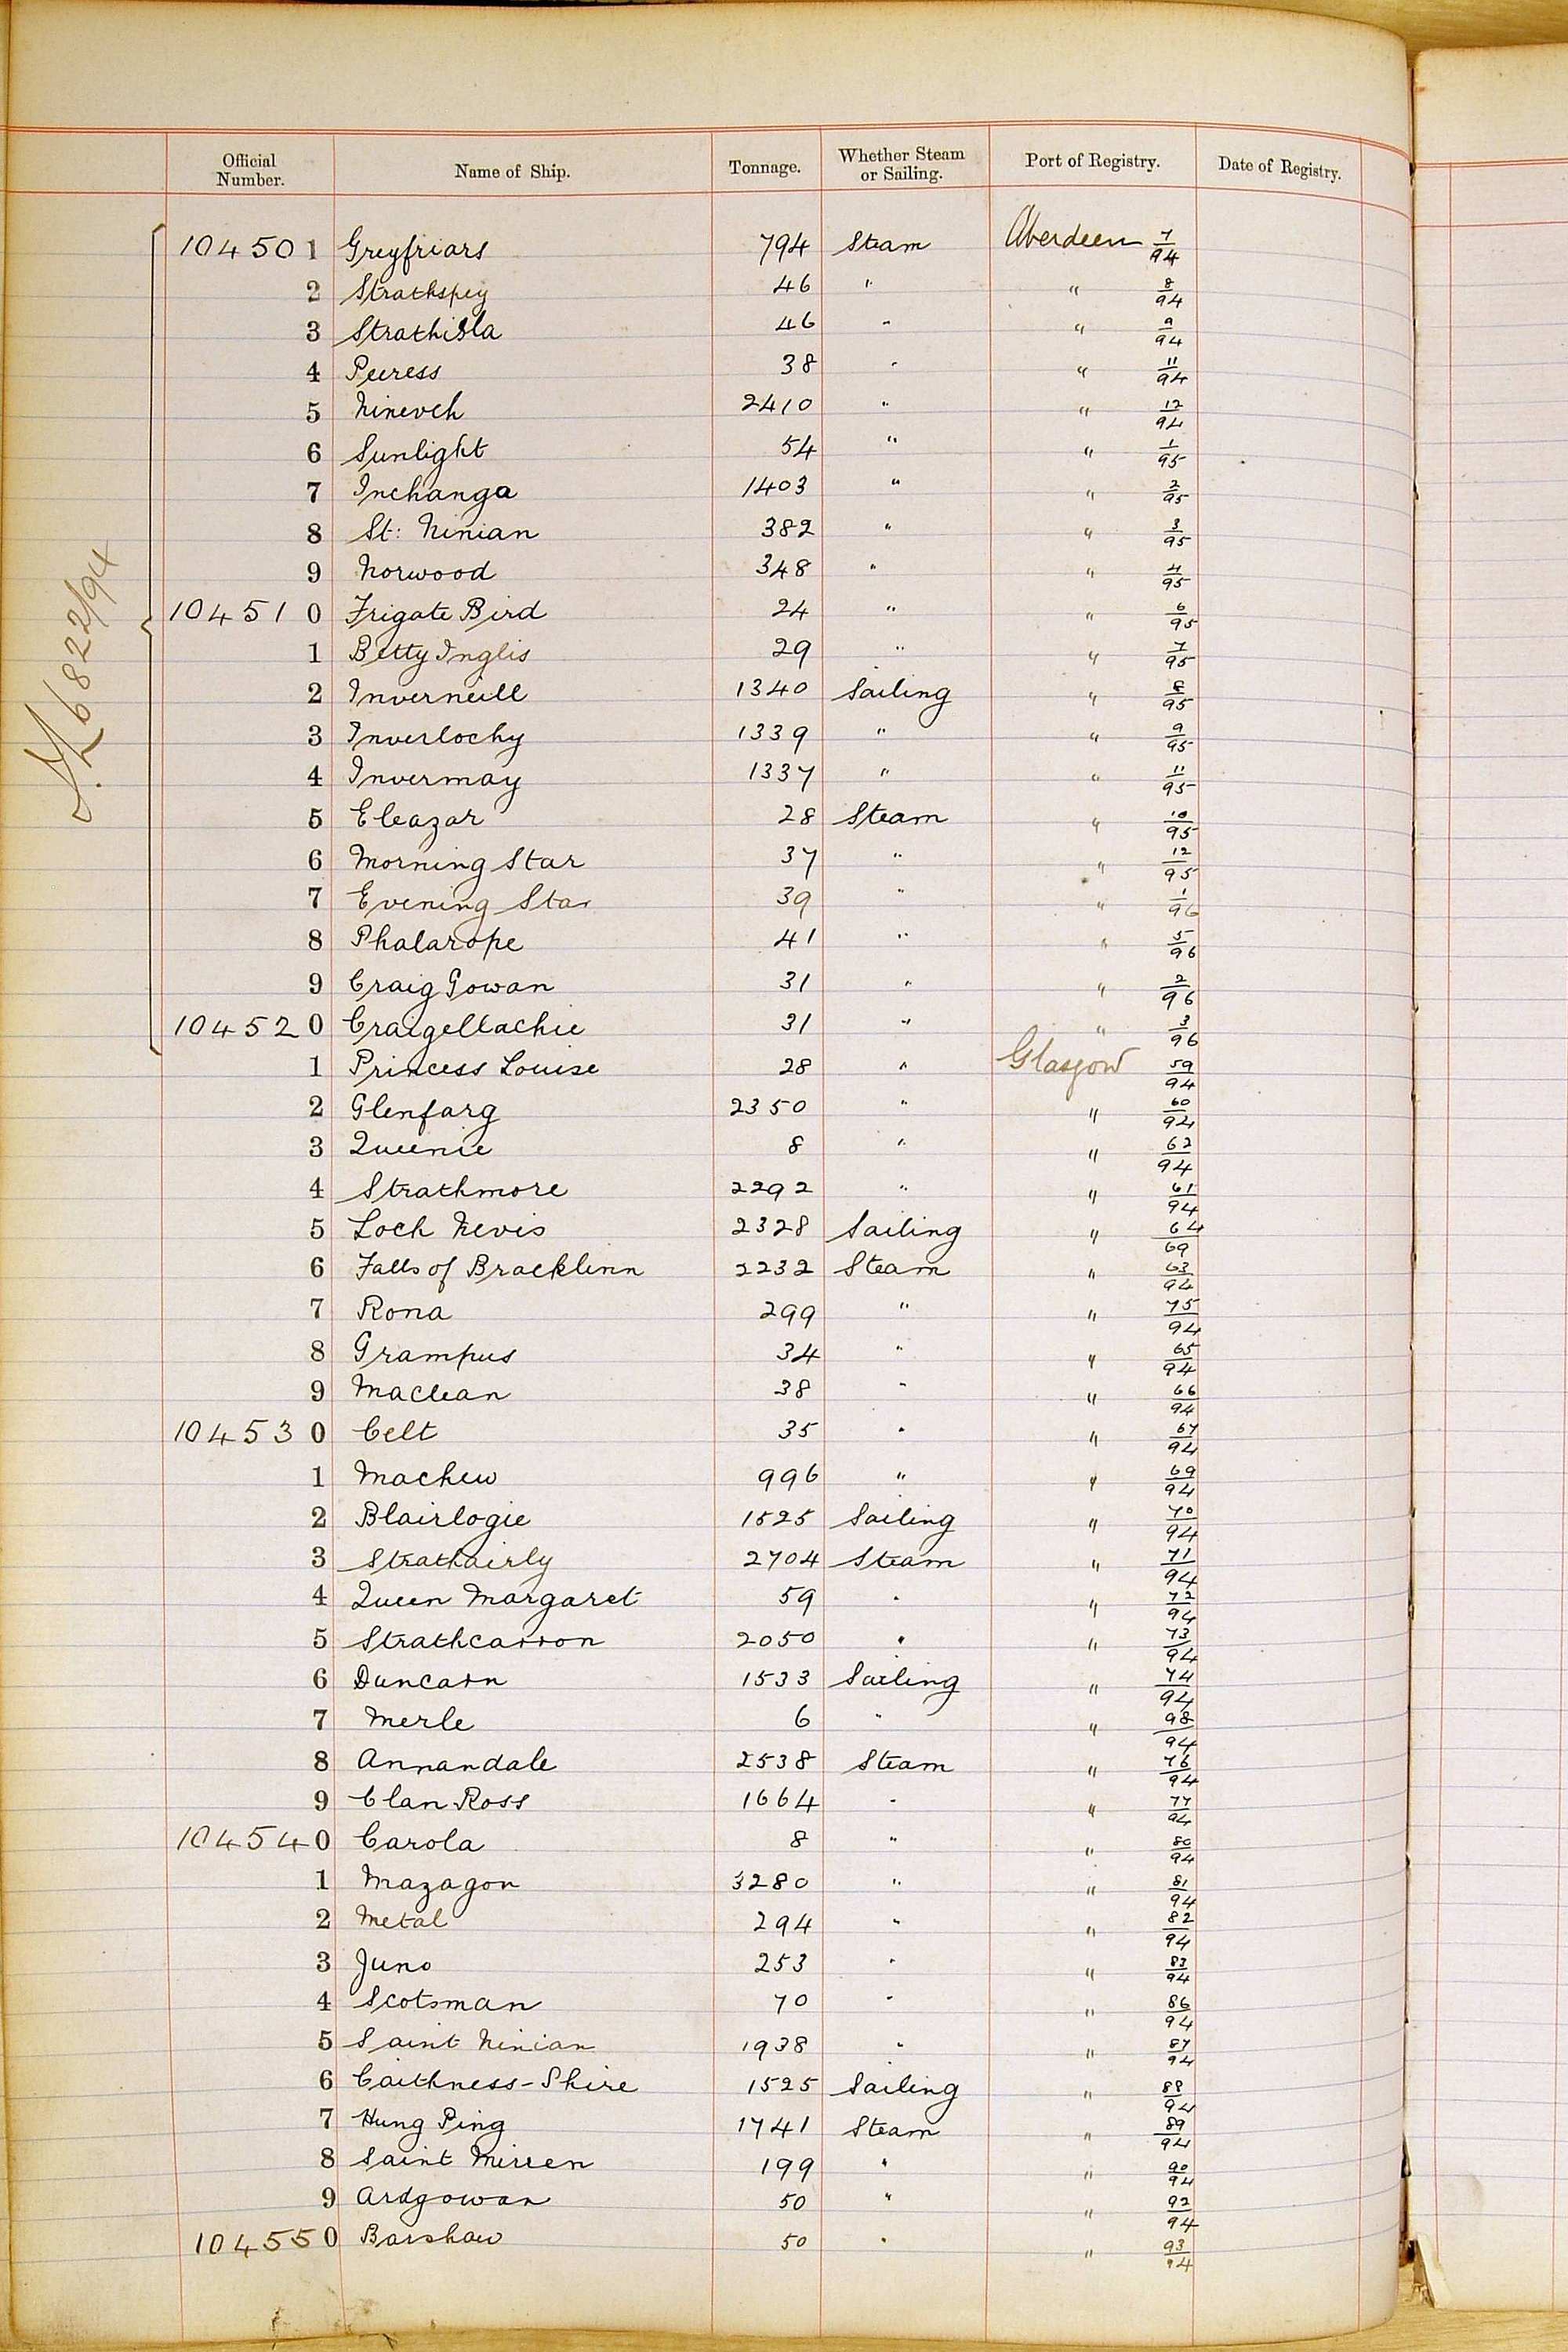 Official Number. Name of Ship. Tonnage. Whether Steam or Sailing. Port of Registry. Date of Registry.
104501 Greyfriars 794 Steam Aberdeen 7/94
2 Strathspey 46 " " 8/94
3 Strathisla 46 " " 9/94
4 Peeress 38 " " 11/94
5 Nineveh 2410 " " 12/94
6 Sunlight 54 " " 1/95
7 Inchanga 1403 " " 2/95
8 St: Ninian 382 " " 3/95
9 Norwood 348 " " 4/95
104510 Frigate Bird 24 " " 6/95
1 Betty Inglis 29 " " 7/95
2 Inverneill 1340 Sailing " 8/95
3 Inverlochy 1339 " " 9/95
4 Invermay 1337 " " 11/95
5 Eleazar 28 Steam " 10/95
6 Morning Star 37 " " 12/95
7 Evening Star 39 " " 1/96
8 Phalarope 41 " " 5/96
9 Craig Gowan 31 " " 2/96
104520 Craigellachie 31 " " 3/96
1 Princess Louise 28 " Glasgow 59/94
2 Glenfarg 2350 " " 60/94
3 Queenie 8 " " 62/94
4 Strathmore 2292 " " 61/94
5 Loch Nevis 2328 Sailing " 64/69
6 Falls of Bracklinn 2232 Steam " 63/94
7 Rona 299 " " 75/94
8 Grampus 34 " " 65/94
9 Maclean 38 " " 66/94
104530 Celt 35 " " 67/94
1 Machew 996 " " 69/94
2 Blairlogie 1525 Sailing " 70/94
3 Strathairly 2704 Steam " 71/94
4 Queen Margaret 59 " " 72/94
5 Strathcarron 2050 " " 73/94
6 Duncarn 1533 Sailing " 74/94
7 Merle 6 " " 98/94
8 Annandale 2538 Steam " 76/94
9 Clan Ross 1664 " " 77/94
104540 Carola 8 " " 80/94
1 Mazagon 3280 " " 81/94
2 Metal 294 " " 82/94
3 Juno 253 " " 83/94
4 Scotsman 70 " " 86/94
5 Saint Ninian 1938 " " 87/94
6 Caithness-Shire 1525 Sailing " 88/94
7 Hung Ping 1741 Steam " 89/94
8 Saint Mirren 199 " " 90/94
9 Ardgowan 50 " " 92/94
104550 Barshaw 50 " " 93/94
6822/94